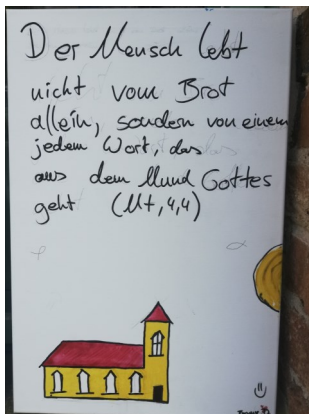 Der Mensch lebt
nicht vom Brot
allein, sondern von einem
jedem Wort, das
aus dem Mund Gottes
geht (Mt, 4,4)